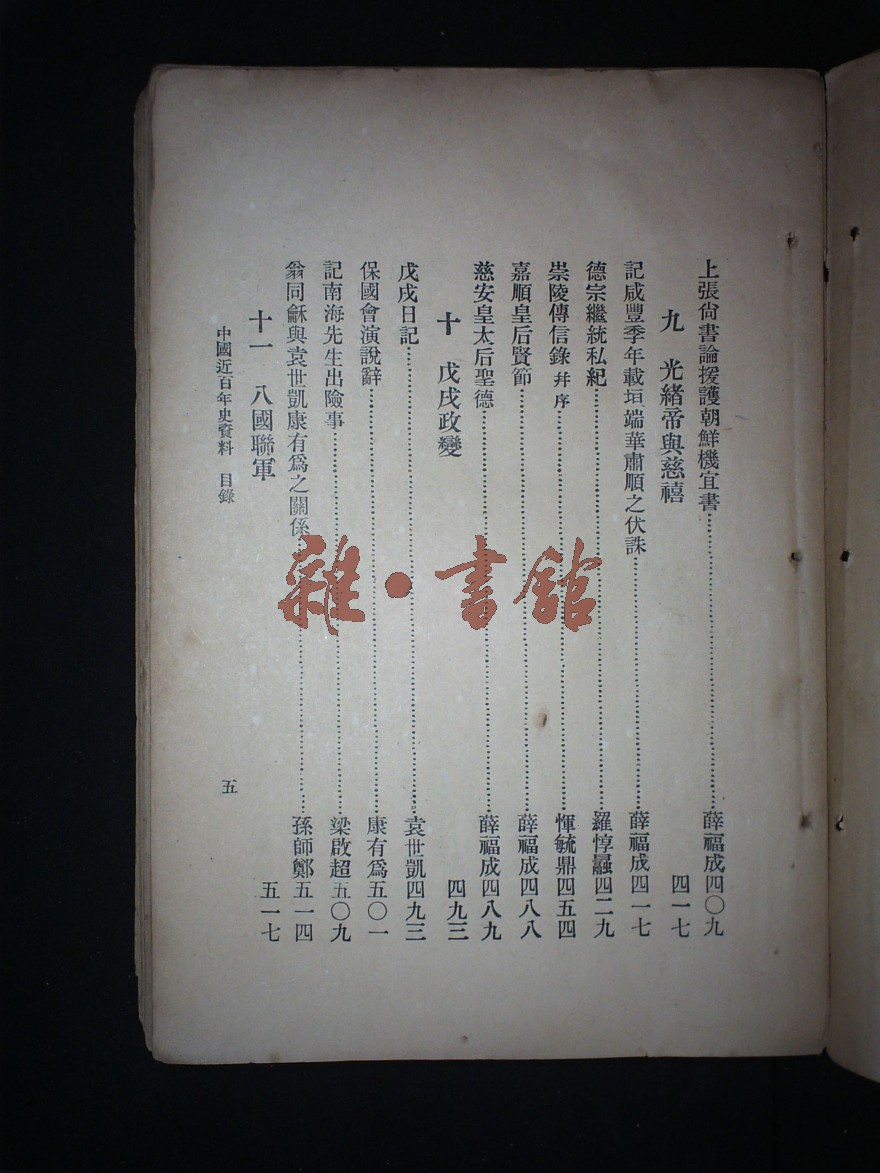 上張尙書論援護朝鮮機宜書……薛福成四〇九
九　光緖帝與慈禧　四一七
記咸豐季年載垣端華肅順之伏誅……薛福成四一七
德宗繼統私紀……羅惇曧四二九
崇陵傳信錄 幷序……惲毓鼎四五四
嘉順皇后賢節……薛福成四八八
慈安皇太后聖德……薛福成四八九
十　戊戌政變　四九三
戊戌日記……袁世凱四九三
保國會演說辭……康有爲五〇一
記南海先生出險事……梁啟超五〇九
翁同龢與袁世凱康有爲之關係……孫師鄭五一四
十一　八國聯軍　五一七
中國近百年史資料　目錄　五
雜·書館